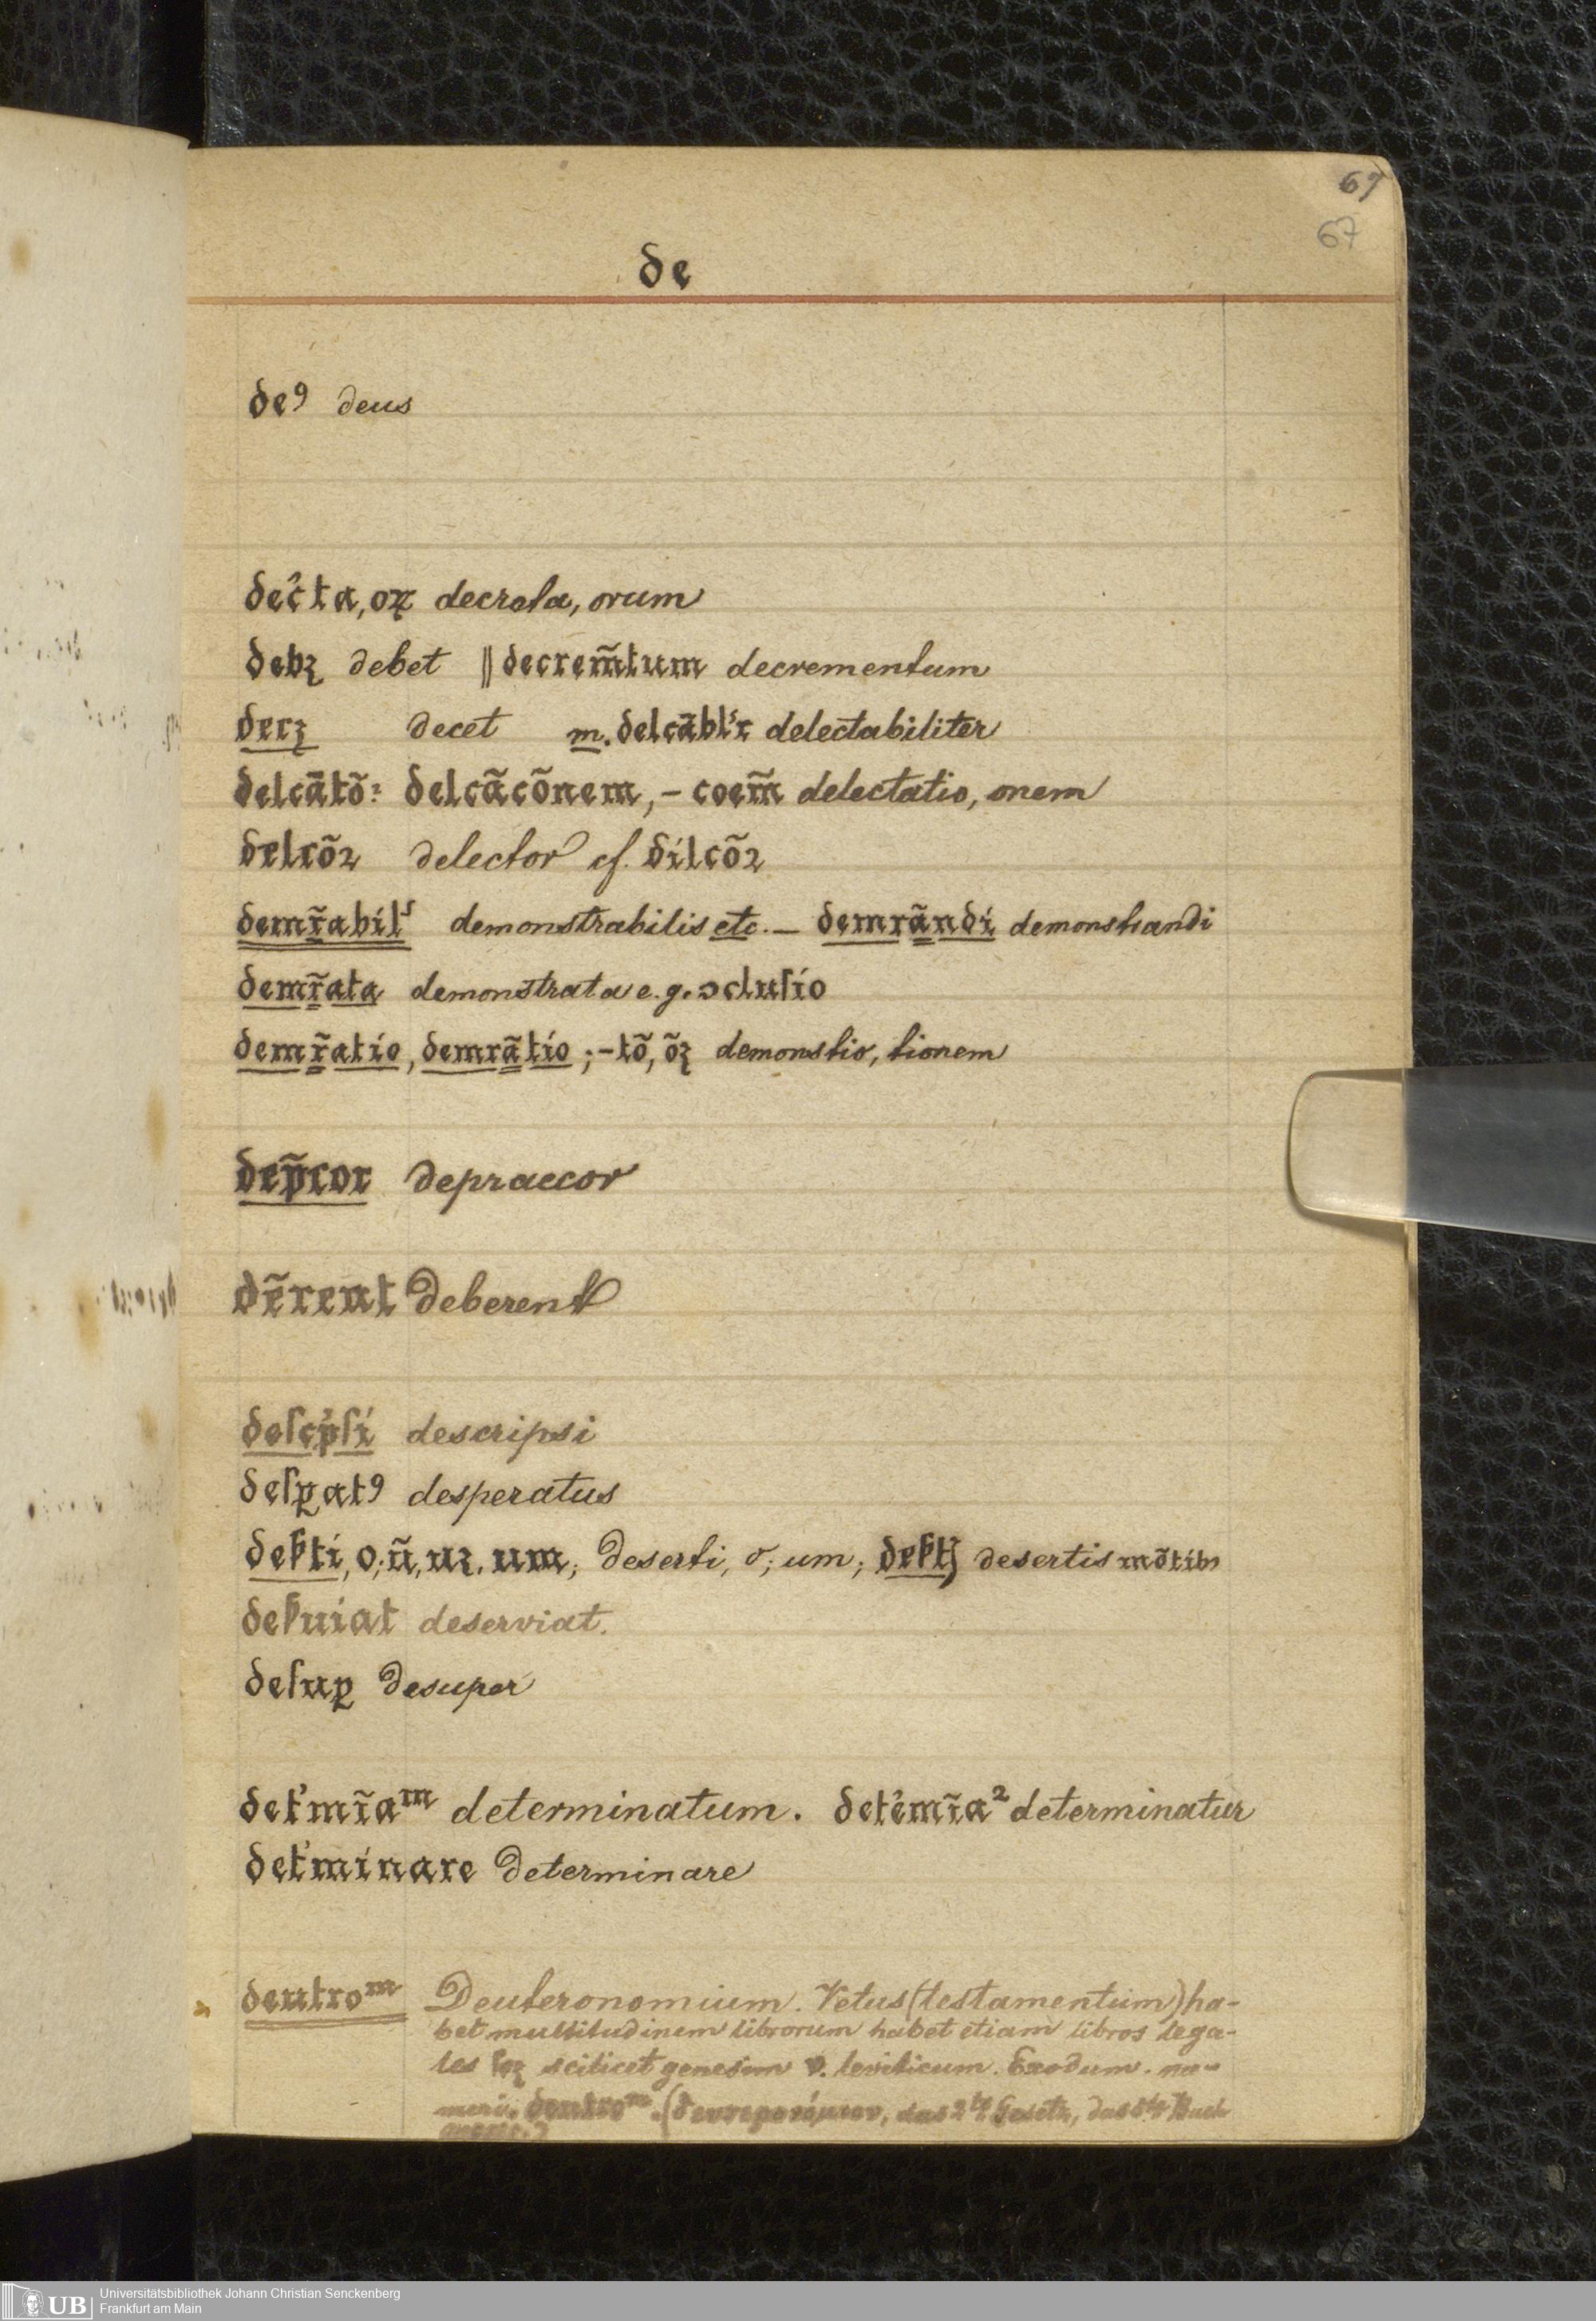 69
67
de
deꝰ deus
dec̾ta, oꝝ decreta, orum
debꝫ debet || decrem̃tum decrementum
decꝫ decet m. delcãblᷤr delectabiliter
delcãtõ: delcãcõnem, - coem̃ delectatio, onem
delcõꝛ delector cf. dilcõꝛ
demr̃abilˢ demonstrabilis etc. — demrãndi demonstrandi
demr̃ata demonstrata e. g. ↄclusio
demr̃atio, demrãtio; -tõ, õꝫ demonstio, tionem
dep̃cor depraecor
dẽrent deberent
deſcp̓ſi descripsi
deſꝑatꝰ desperatus
deẜti, o; ũ, uꝫ, um; deserti, o; um; deẜtꝭ desertis mõtibꝫ
deẜuiat deserviat.
deſuꝑ desuper
det̓mĩaᵐ determinatum. det̓emĩa² determinatur
det̓minare determinare
deutroᵐ Deuteronomium. Vetus (testamentum) ha-
bet multitudinem librorum habet etiam libros lega-
les ſcꝫ scilicet genesim v. leviticum. Exodum. nu-
meri. deutroᵐ. das 2te Gesetz, das 5te Buch
Universitätsbibliothek Johann Christian Senckenberg
Frankfurt am Main
UB